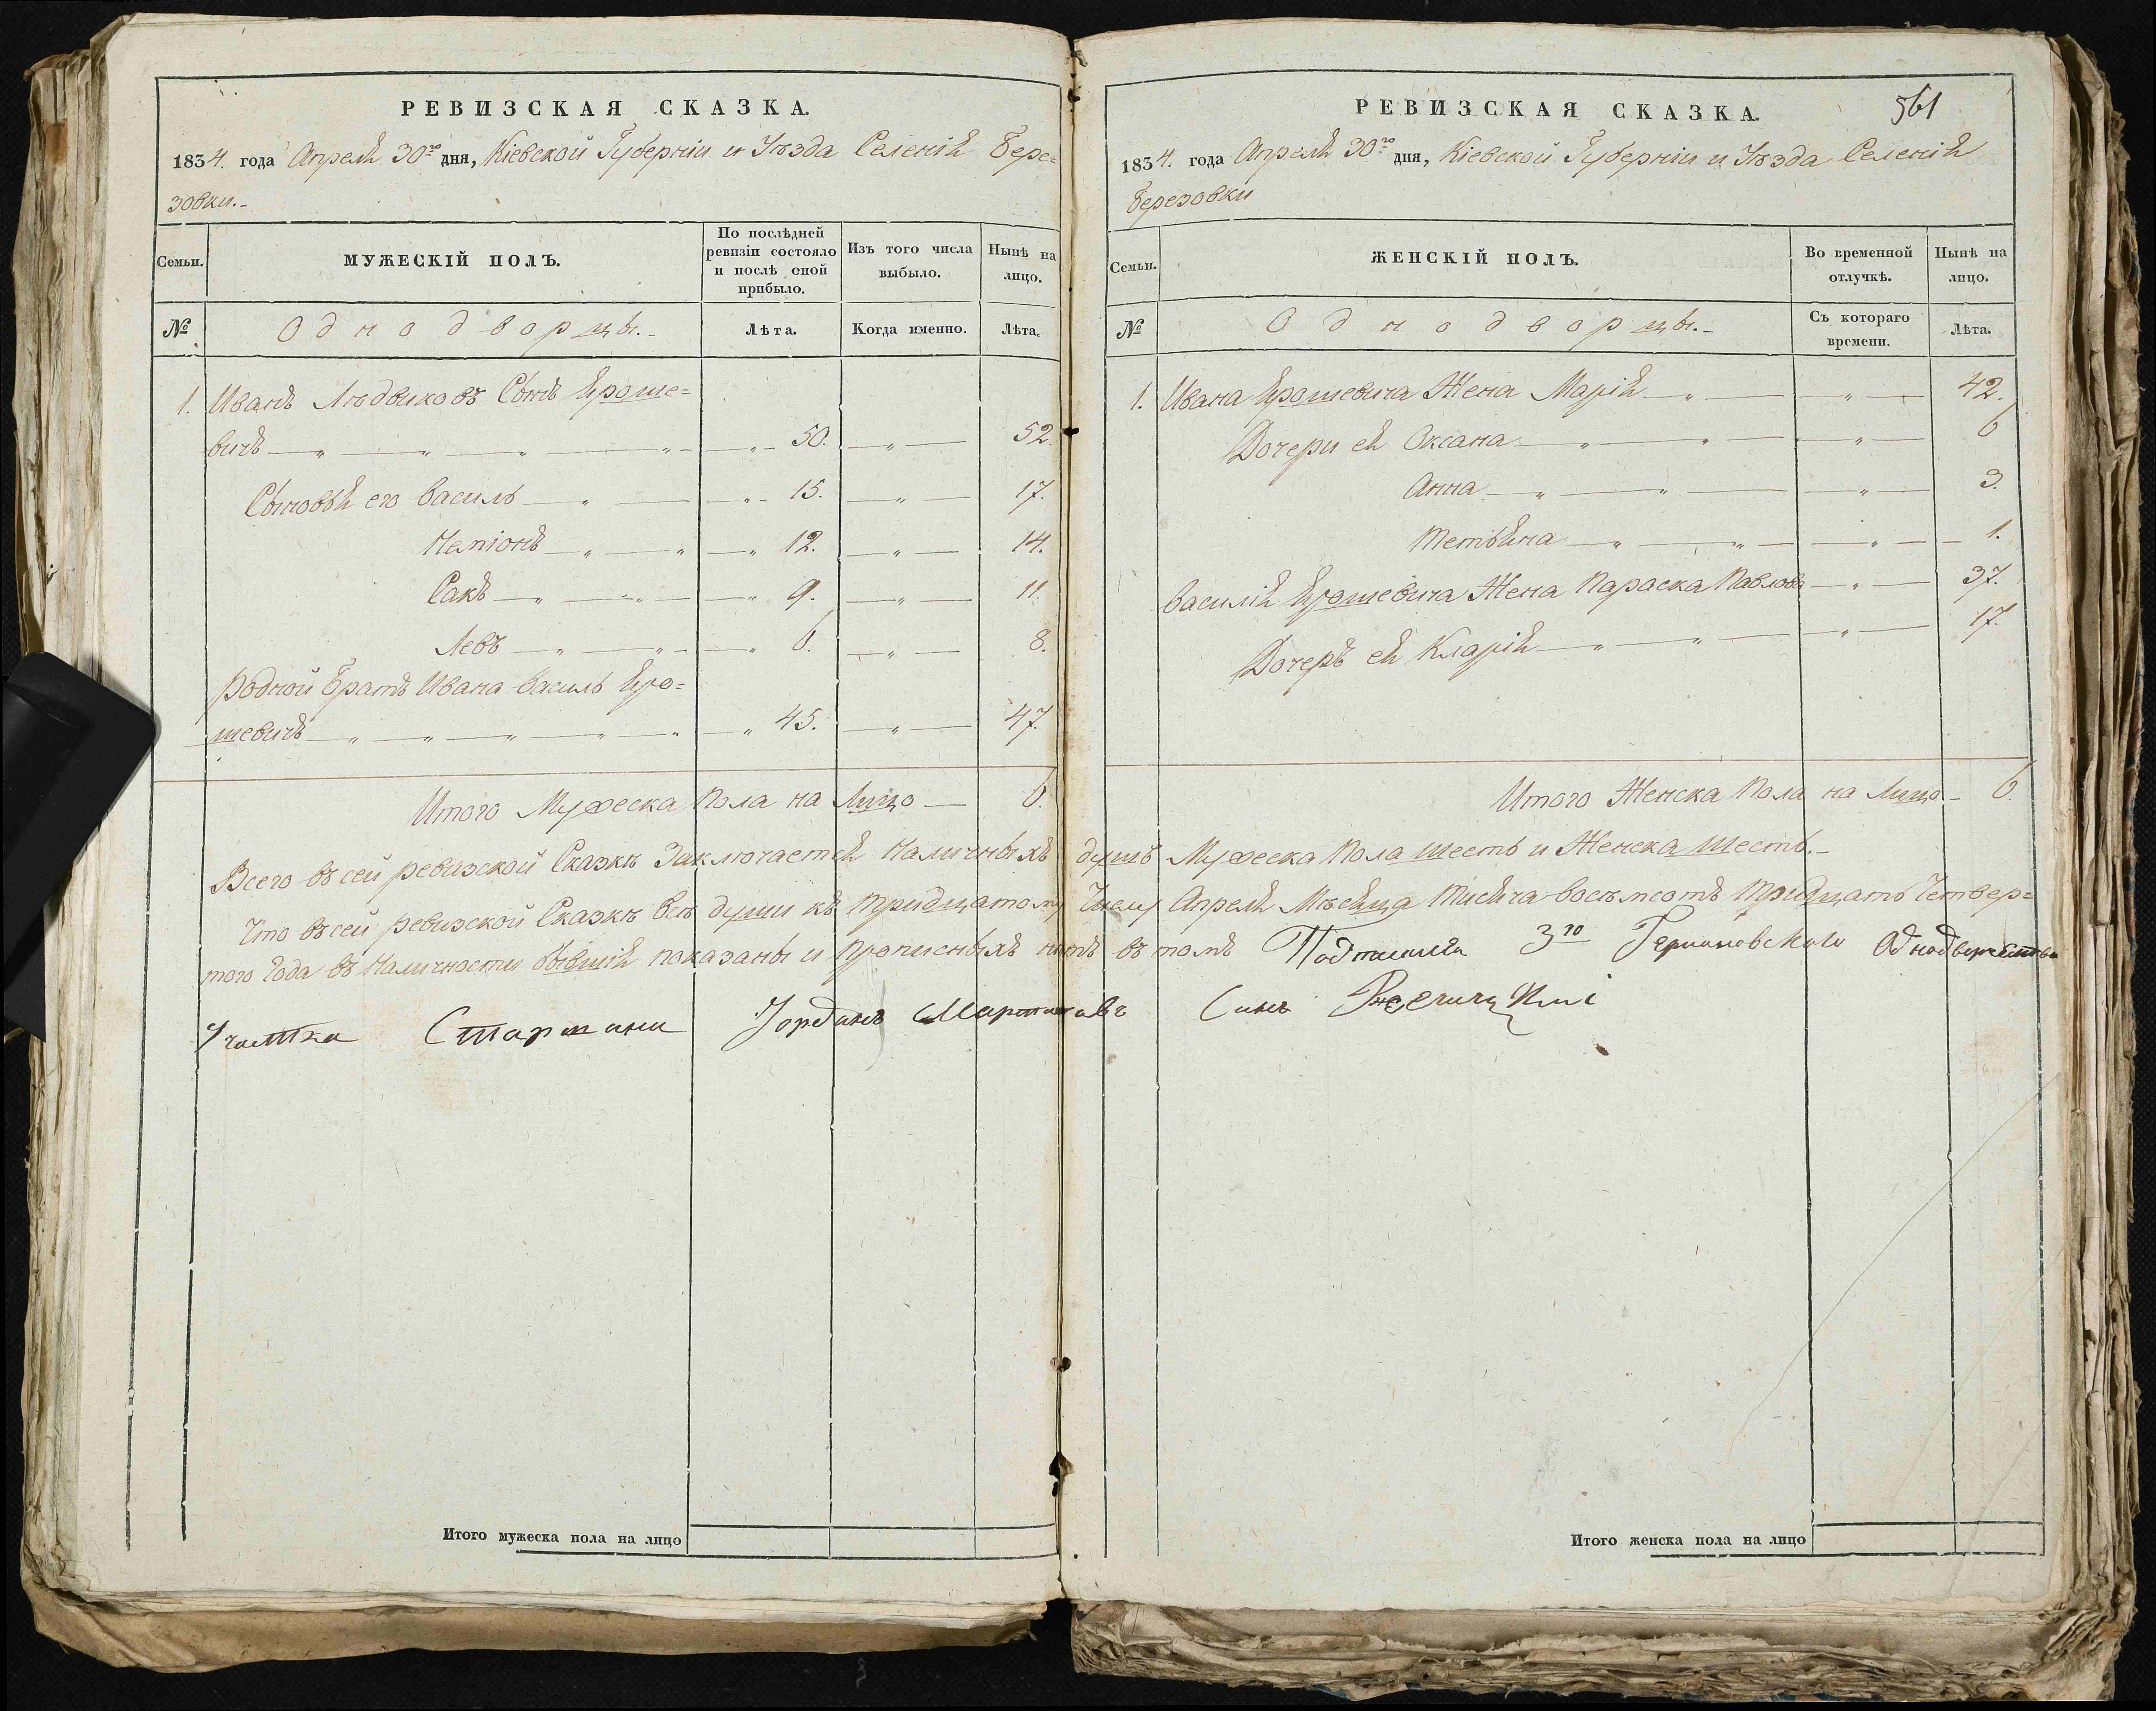 РЕВИЗСКАЯ СКАЗКА.
1834. года Апреля 30го дня, Кіевской Губерніи и Уѣзда Селенія Бере=
зовки.-
Семьи.
МУЖЕСКІЙ ПОЛЪ.
По послѣдней
ревизіи состояло
и послѣ оной
прибыло.
Изъ того числа
выбыло.
Нынѣ на
лицо.
№
Однодворцы.-
Лѣта.
Когда именно.
Лѣта.
1. Иванъ Людвиковъ Сынъ Яроше=
вичъ 50. 52.
Сыновья его Василь 15. 17.
12. 14.
Сакъ 9. 11.
Левъ 6. 8.
Родной Братъ Ивана Василь Яро=
шевичъ 45. 47.
Итого Мужеска Пола на Лицо — 6.
РЕВИЗСКАЯ СКАЗКА.
561
1834. года Апреля 30го дня, Кіевской Губерніи и Уѣзда Селенія
Березовки
Семьи.
ЖЕНСКІЙ ПОЛЪ.
Во временной
отлучкѣ.
Нынѣ на
лицо.
№
Однодворцы.-
Съ котораго
времени.
Лѣта.
1. Ивана Ярошевича Жена Марія 42.
Дочери ея Оксана 6
Анна 3.
1.
Василія Ярошевича Жена Параска Павлова 37.
Дочеръ ея Кларія 17.
Итого Женска Пола на Лицо - 6.
Всего въ сей ревизской Сказкѣ Заключается Наличныхъ душъ Мужеска Пола шесть и Женска шесть.-
Что въ сей ревизской Сказкѣ всѣ души къ тридцатому Числу Апреля Мѣсяца Тисяча восемсотъ тридцать Четвер=
того Года въ Наличности бывшія показаны и прописныхъ нѣтъ въ томъ 3го
Участка Старшина Іорданъ Мартиновъ Синъ
Итого мужеска пола на лицо
Итого женска пола на лицо